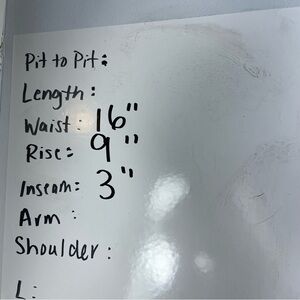 Pit to Pit:
Length:
Waist: 16"
Rise: 9"
Inseam: 3"
Arm:
Shoulder:
L: